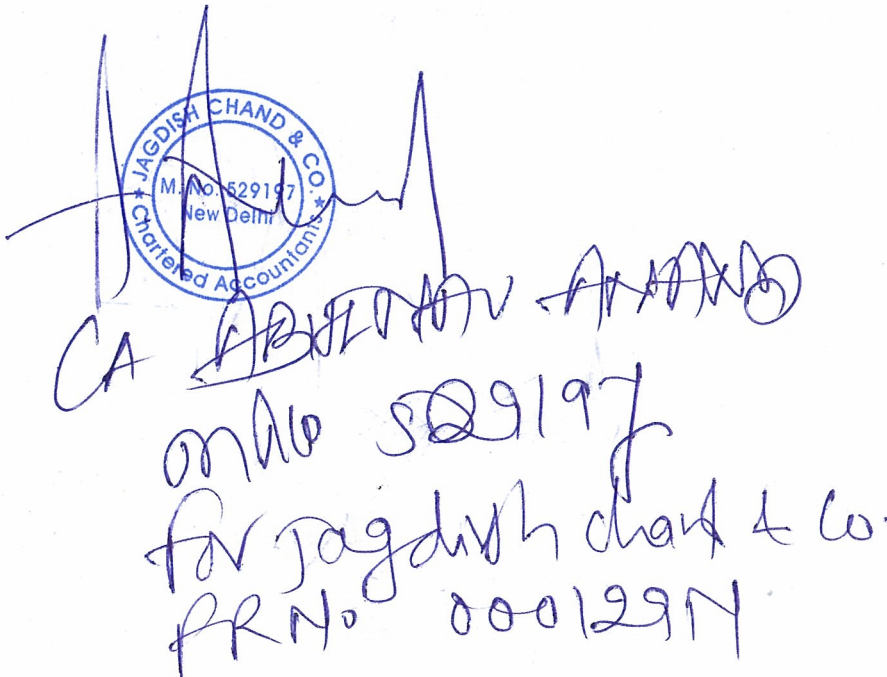 JAGDISH CHAND & CO.
M. No. 529197
New Delhi
★ Chartered Accountants ★
CA ABHINAV ANAND
M No 529197
for Jagdish Chand & Co.
FRNo 000129N